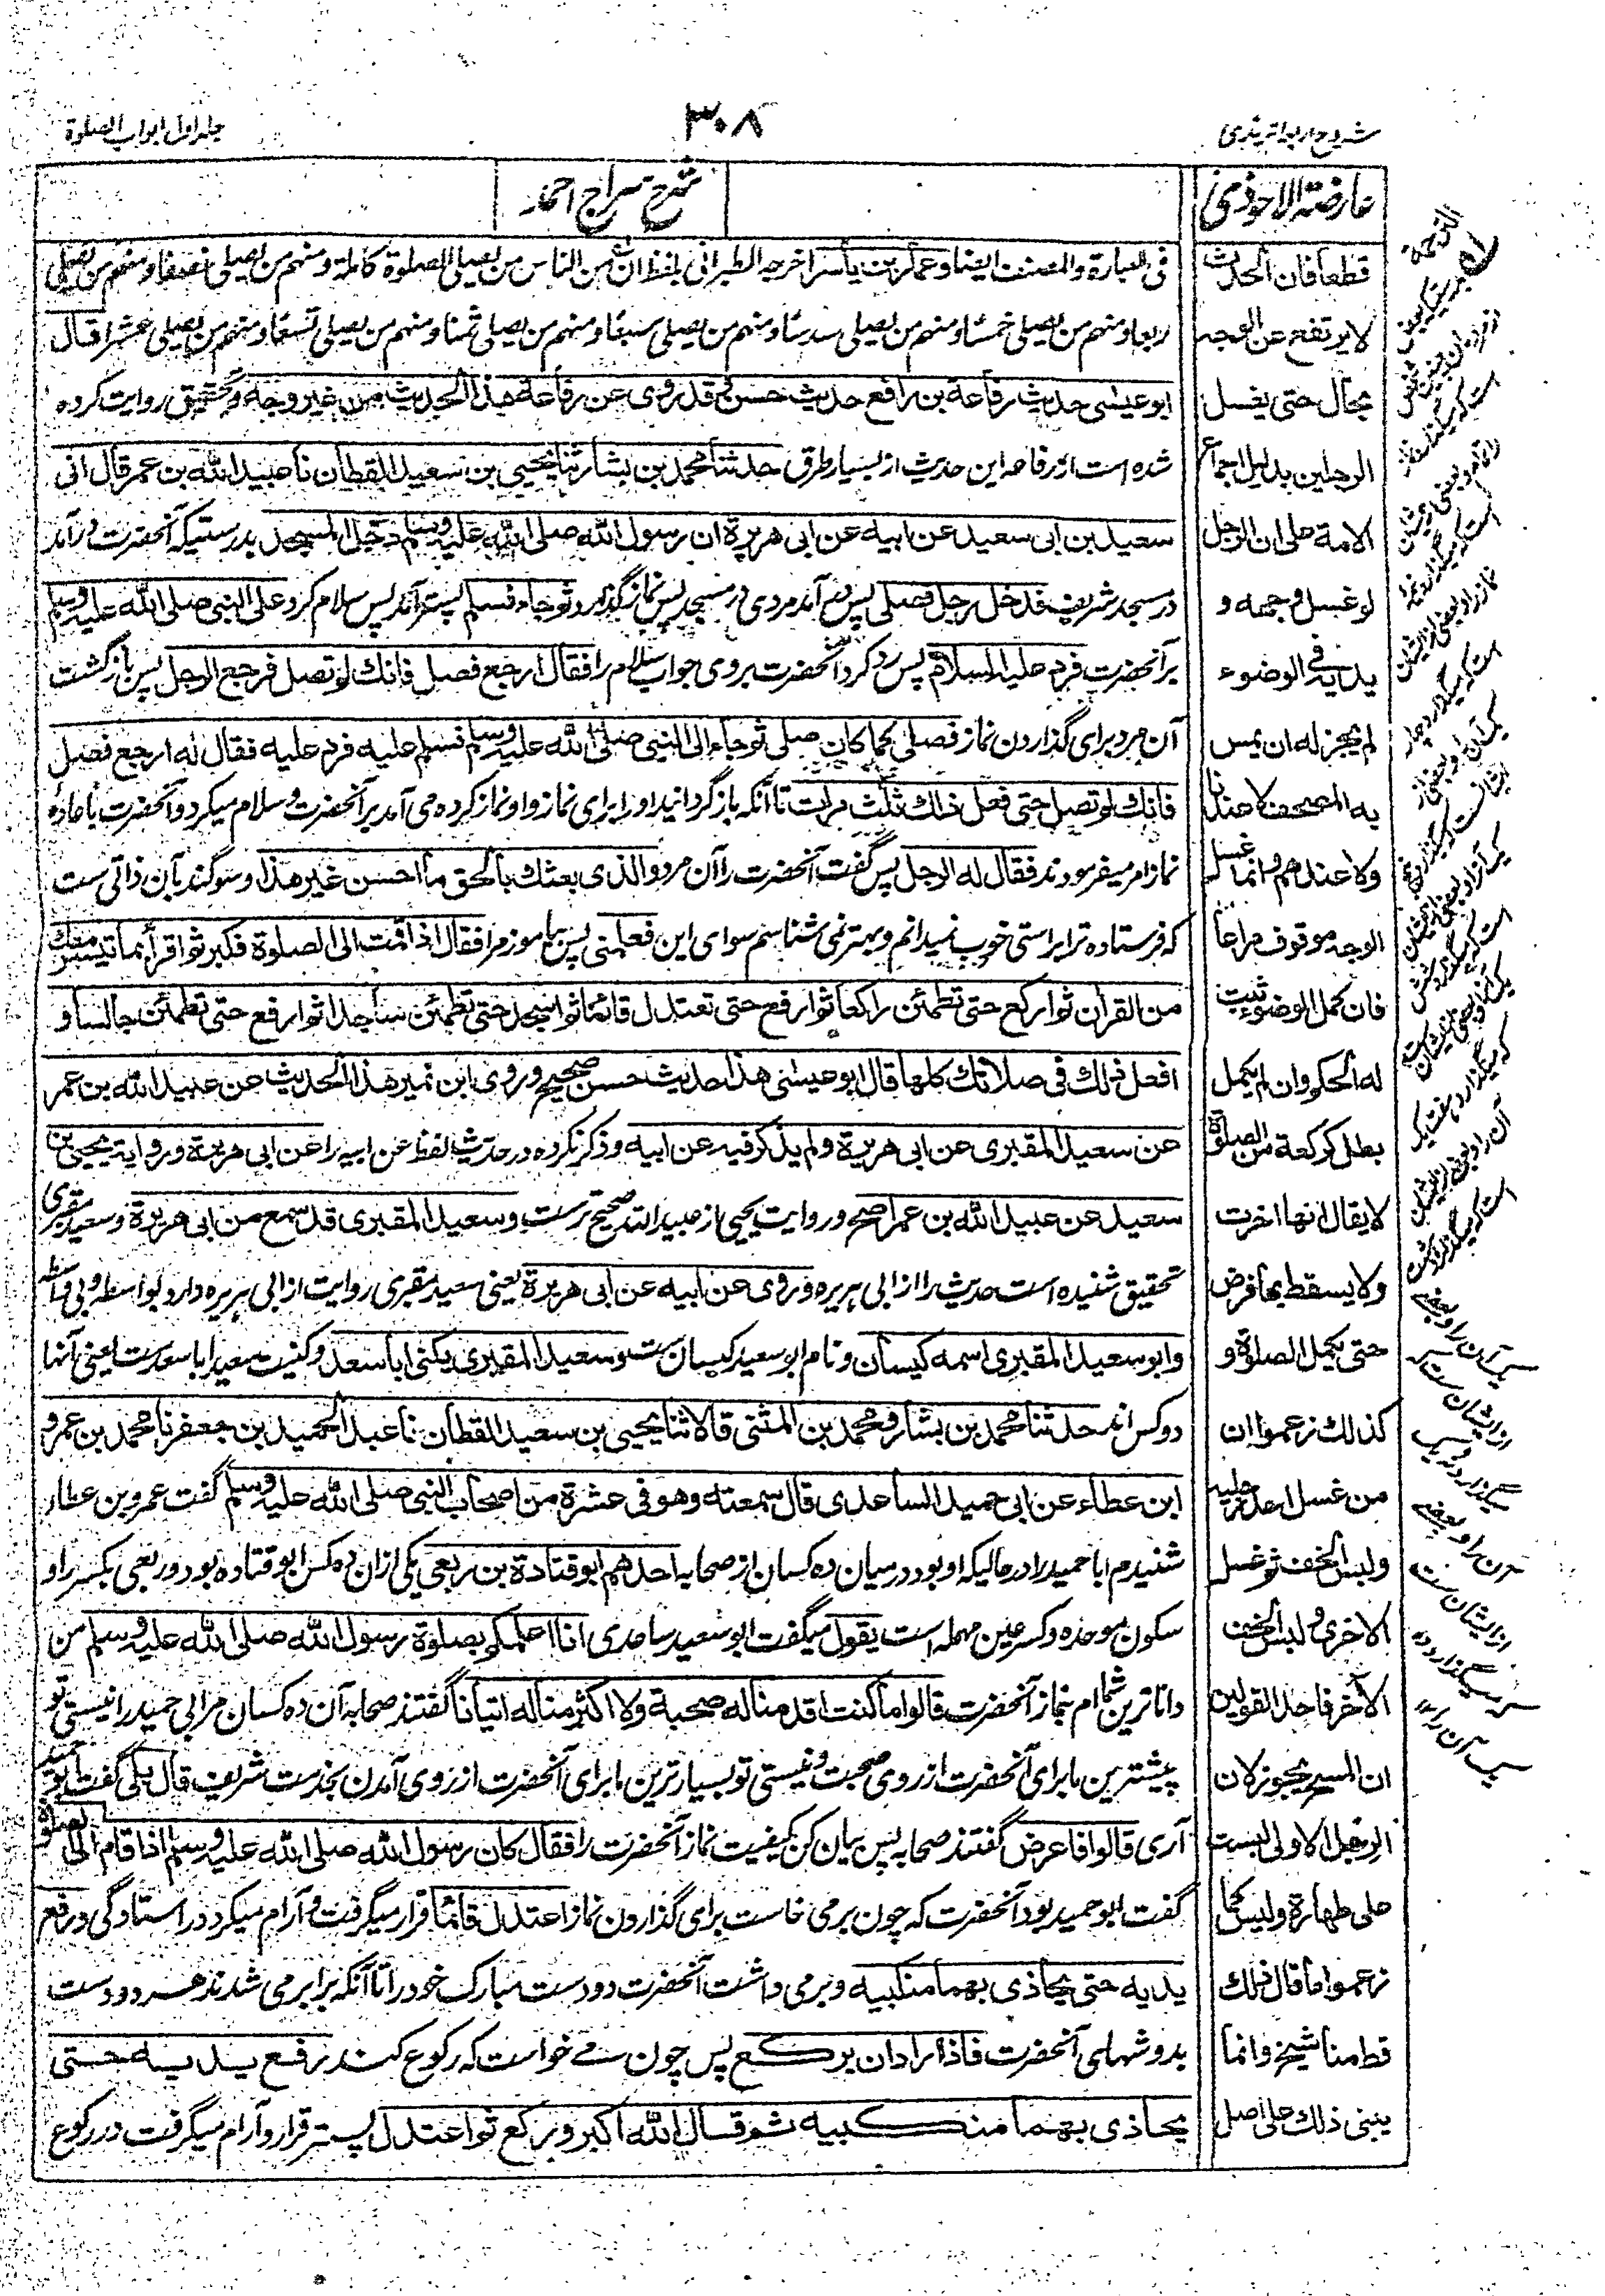 شروح اربعه ترمذی
۳۰۸
جلد اول ابواب الصلوة
عارضة الاحوذی
شرح سراج احمد
قطعا فان الحدث
لا یرتفع عن الوجه
بحال حتی یغسل
الرجلین بدلیل اجماع
الامة علی ان الرجل
لو غسل وجهه و
یدایه فی الوضوء
لم یجز له ان یمس
به المصحف لا عندنا
ولا عندهم وانما غسل
الوجه موقوف مراعا
فان کمل الوضوء ثبت
له الحکم وان لم یکمل
بطل کرکعة من الصلوة
لا یقال انها اخرت
ولا یسقط بها فرض
حتی یکمل الصلوة و
کذلك زعموا ان
من غسل احد رجلیه
ولبس الخف ثم غسل
الاخری ولبس الخف
الآخر فاحد القولین
ان المسح یجوز لان
الرجل الاولی لبست
علی طهارة ولیس کما
زعموا ما قال ذلك
قط منا شیخ وانما
یبنی ذلك علی اصل
فی العبارة والمصنف ایضا وعمار بن یاسر اخرجه الطبرانی بلفظ ان من الناس من یصلی الصلوة کاملة ومنهم من یصلی نصفا ومنهم من یصلی
ربعا ومنهم من یصلی خمسا ومنهم من یصلی سدسا ومنهم من یصلی سبعا ومنهم من یصلی ثمنا ومنهم من یصلی تسعا ومنهم من یصلی عشرا قال
ابو عیسی حدیث رفاعة بن رافع حدیث حسن وقد روی عن رفاعة هذا الحدیث من غیر وجه و بتحقیق روایت کرده
شده است از رفاعه این حدیث از بسیار طرق حدثنا محمد بن بشار ثنا یحیی بن سعید القطان نا عبید الله بن عمر قال انی
سعید بن ابی سعید عن ابیه عن ابی هریرة ان رسول الله صلی الله علیه وسلم دخل المسجد بدرستیکه آنحضرت در آمد
در مسجد شریف فدخل رجل فصلی پس در آمد مردی در مسجد پس نماز گذارد ثم جاء فسلم پستر آمد پس سلام کرد علی النبی صلی الله علیه وسلم
بر آنحضرت فرد علیه السلام پس رد کرد آنحضرت بروی جواب سلام را فقال ارجع فصل فانك لم تصل فرجع الرجل پس بازگشت
آن مرد برای گذاردن نماز فصلی کما کان صلی ثم جاء الی النبی صلی الله علیه وسلم فسلم علیه فرد علیه فقال له ارجع فصل
فانك لم تصل حتی فعل ذلك ثلث مرات تا آنکه باز گردانید او را برای نماز و او نماز کرده می آمد بر آنحضرت و سلام میکرد و آنحضرت باعادهٔ
نماز امر میفرمودند فقال له الرجل پس گفت آنحضرت را آن مرد والذی بعثك بالحق ما احسن غیر هذا و سوگند بآن ذاتی ست
که فرستاده ترا براستی خوب نمیدانم و بهتر نمی شناسم سوای این فعلمنی پس بیاموز مرا فقال اذا قمت الی الصلوة فکبر ثم اقرأ بما تیسر معك
من القرآن ثم ارکع حتی تطمئن راکعا ثم ارفع حتی تعتدل قائما ثم اسجد حتی تطمئن ساجدا ثم ارفع حتی تطمئن جالسا و
افعل ذلك فی صلاتك کلها قال ابو عیسی هذا حدیث حسن صحیح وروی ابن نمیر هذا الحدیث عن عبید الله بن عمر
عن سعید المقبری عن ابی هریرة ولم یذکر فیه عن ابیه و ذکر نکرده در حدیث لفظ عن ابیه را عن ابی هریرة وروایة یحیی بن
سعید عن عبید الله بن عمر اصح و روایت یحیی از عبید الله صحیح ترست وسعید المقبری قد سمع من ابی هریرة و سعید مقبری
تحقیق شنیده است حدیث را از ابی هریره وروی عن ابیه عن ابی هریرة یعنی سعید مقبری روایت از ابی هریره دارد بواسطه و بی واسطه
وابو سعید المقبری اسمه کیسان و نام ابو سعید کیسان ست وسعید المقبری یکنی ابا سعد و کنیت سعید ابا سعدست یعنی آنها
دو کس اند حدثنا محمد بن بشار ومحمد بن المثنی قالا ثنا یحیی بن سعید القطان نا عبد الحمید بن جعفر نا محمد بن عمرو
ابن عطاء عن ابی حمید الساعدی قال سمعته وهو فی عشرة من اصحاب النبی صلی الله علیه وسلم گفت عمرو بن عطاء
شنیدم ابا حمید را در حالیکه او بود در میان ده کسان از صحابه احدهم ابو قتادة بن ربعی یکی از ان ده کس ابو قتاده بود و ربعی بکسر راو
سکون موحده وکسر عین مهمله است یقول میگفت ابو سعید ساعدی انا اعلمکم بصلوة رسول الله صلی الله علیه وسلم من
دانا ترین شما ام بنماز آنحضرت قالوا ما کنت اقدمنا له صحبة ولا اکثرنا له اتیانا گفتند صحابه آن ده کسان مر ابی حمید را نیستی تو
پیشترین ما برای آنحضرت از روی صحبت و نیستی تو بسیار ترین ما برای آنحضرت از روی آمدن بخدمت شریف قال بلی گفت ابو حمید
آری قالوا فاعرض گفتند صحابه پس بیان کن کیفیت نماز آنحضرت را فقال کان رسول الله صلی الله علیه وسلم اذا قام الی الصلوة
گفت ابو حمید بود آنحضرت که چون برمی خاست برای گذاردن نماز اعتدل قائما قرار میگرفت و آرام میکرد در استادگی ورفع
یدیه حتی یحاذی بهما منکبیه و برمی داشت آنحضرت دو دست مبارک خود را تا آنکه برابر می شدند هر دو دست
بدوشهای آنحضرت فاذا اراد ان یرکع پس چون می خواست که رکوع کند رفع یدیه حتی
یحاذی بهما منکبیه ثم قال الله اکبر ورکع ثم اعتدل پستر قرار و آرام میگرفت در رکوع